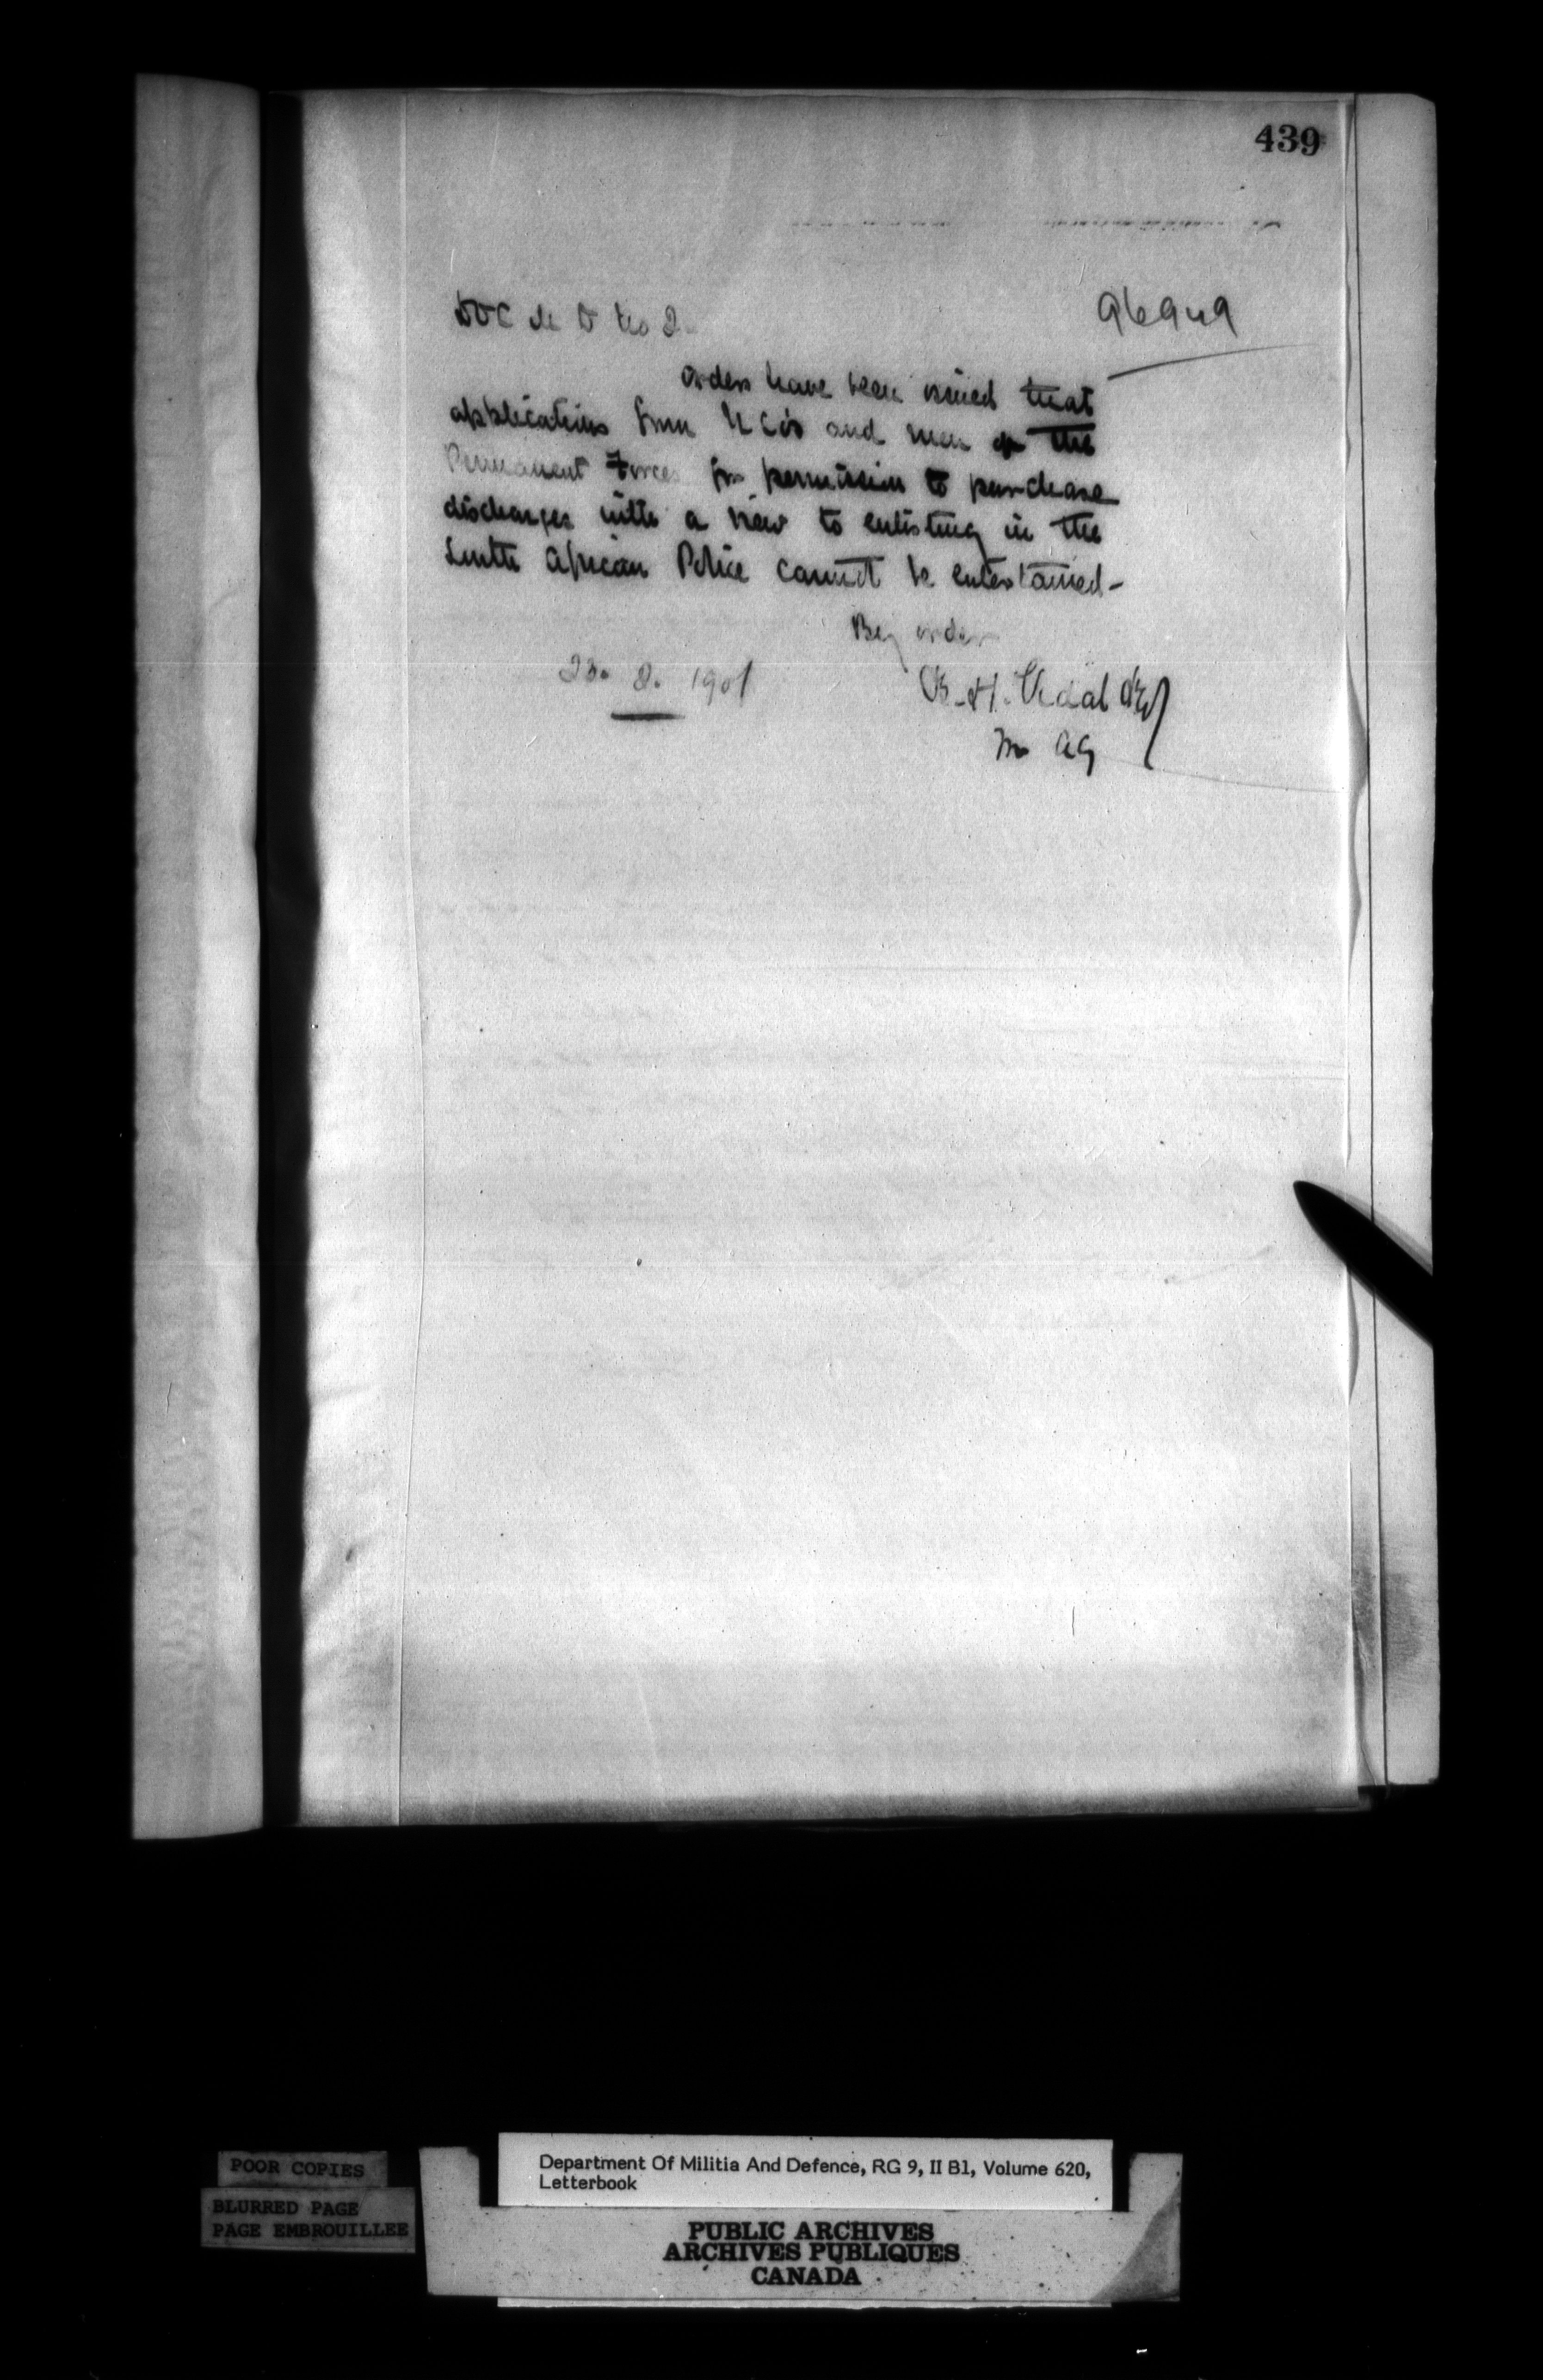 439
DOC M D No 2
Orders have been issued that
applications from NCO's and men of the
Permanent Forces for permission to purchase
discharges with a view to enlisting in the
South African Police cannot be entertained -
By order
23. 2. 1901
B. H. Vidal
AG
POOR COPIES
BLURRED PAGE
PAGE EMBROUILLEE
Department Of Militia And Defence, RG 9, II B1, Volume 620,
Letterbook
PUBLIC ARCHIVES
ARCHIVES PUBLIQUES
CANADA